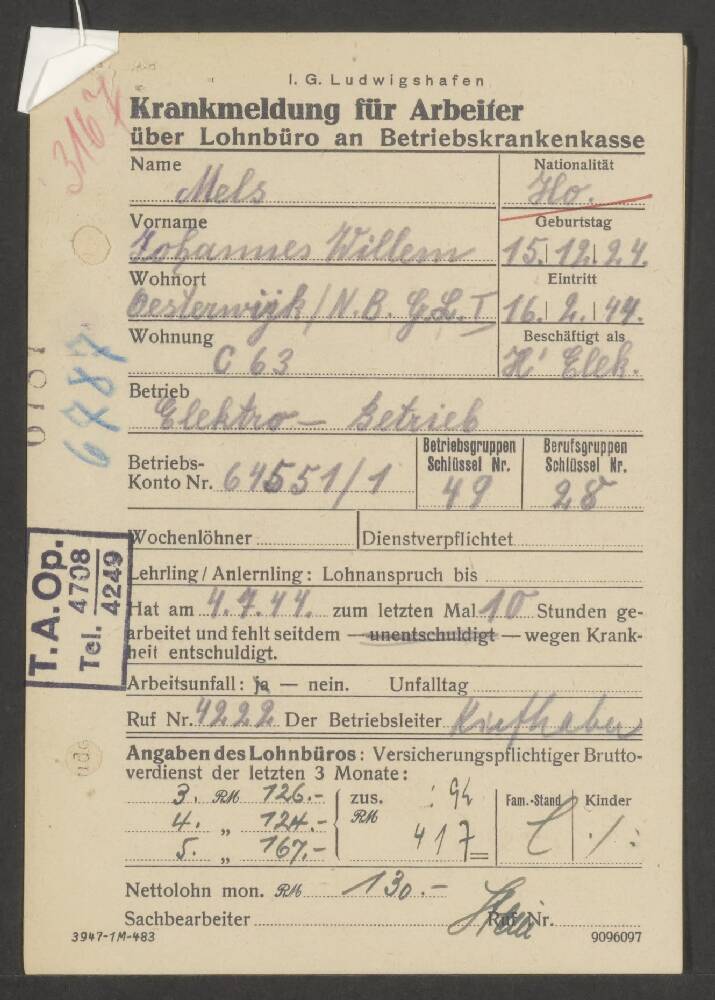 I. G. Ludwigshafen
Krankmeldung für Arbeiter
über Lohnbüro an Betriebskrankenkasse
3167
Name Nationalität
Mels Ho.
Vorname Geburtstag
Johannes Willem 15. 12. 24.
Wohnort Eintritt
Oesterwijk / N.B. G.L.I 16. 2. 44.
Wohnung Beschäftigt als
C 63 H' Elek.
6787
Betrieb
Elektro - Betrieb
Betriebsgruppen Schlüssel Nr. Berufsgruppen Schlüssel Nr.
Betriebs-
Konto Nr. 64551/1 49 28
Wochenlöhner Dienstverpflichtet
Lehrling / Anlernling: Lohnanspruch bis
T. A. Op.
Tel. 4708 4249
Hat am 4.7.44. zum letzten Mal 10 Stunden ge-
arbeitet und fehlt seitdem — unentschuldigt — wegen Krank-
heit entschuldigt.
Arbeitsunfall: ja — nein. Unfalltag
Ruf Nr. 4222 Der Betriebsleiter Kiefhaber
Angaben des Lohnbüros: Versicherungspflichtiger Brutto-
verdienst der letzten 3 Monate:
3. RM 126.- zus. : 94 Fam.-Stand Kinder
4. „ 124.- RM ./.
5. „ 167,- 417
Nettolohn mon. RM 130.-
Sachbearbeiter Ruf Nr.
3947-1M-483 9096097